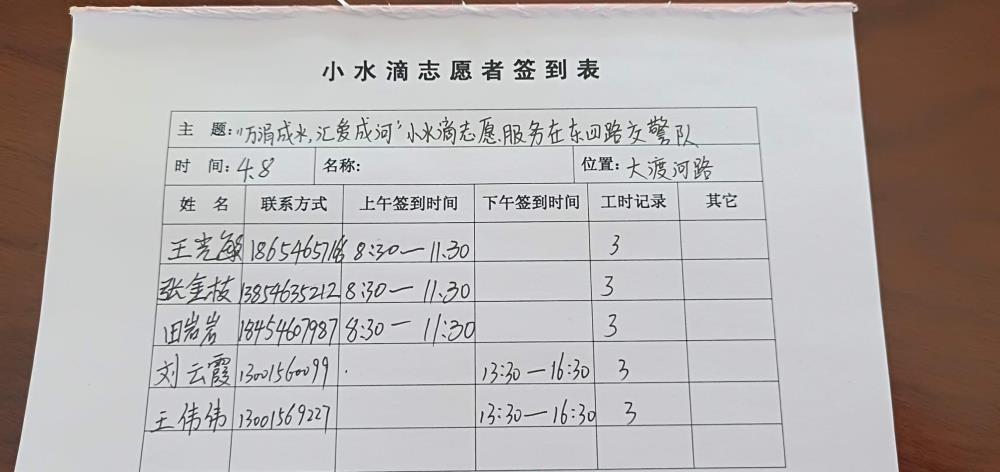 小水滴志愿者签到表
主 题:"万涓成水,汇爱成河"小水滴志愿服务在东四路交警队
时 间:4.8 名称: 位置:大渡河路
姓 名 联系方式 上午签到时间 下午签到时间 工时记录 其它
王光敏 8:30—11:30 3
张金枝 13854635212 8:30—11:30 3
田岩岩 18454607987 8:30—11:30 3
刘云霞 13001560099 13:30—16:30 3
王伟伟 13001569227 13:30—16:30 3